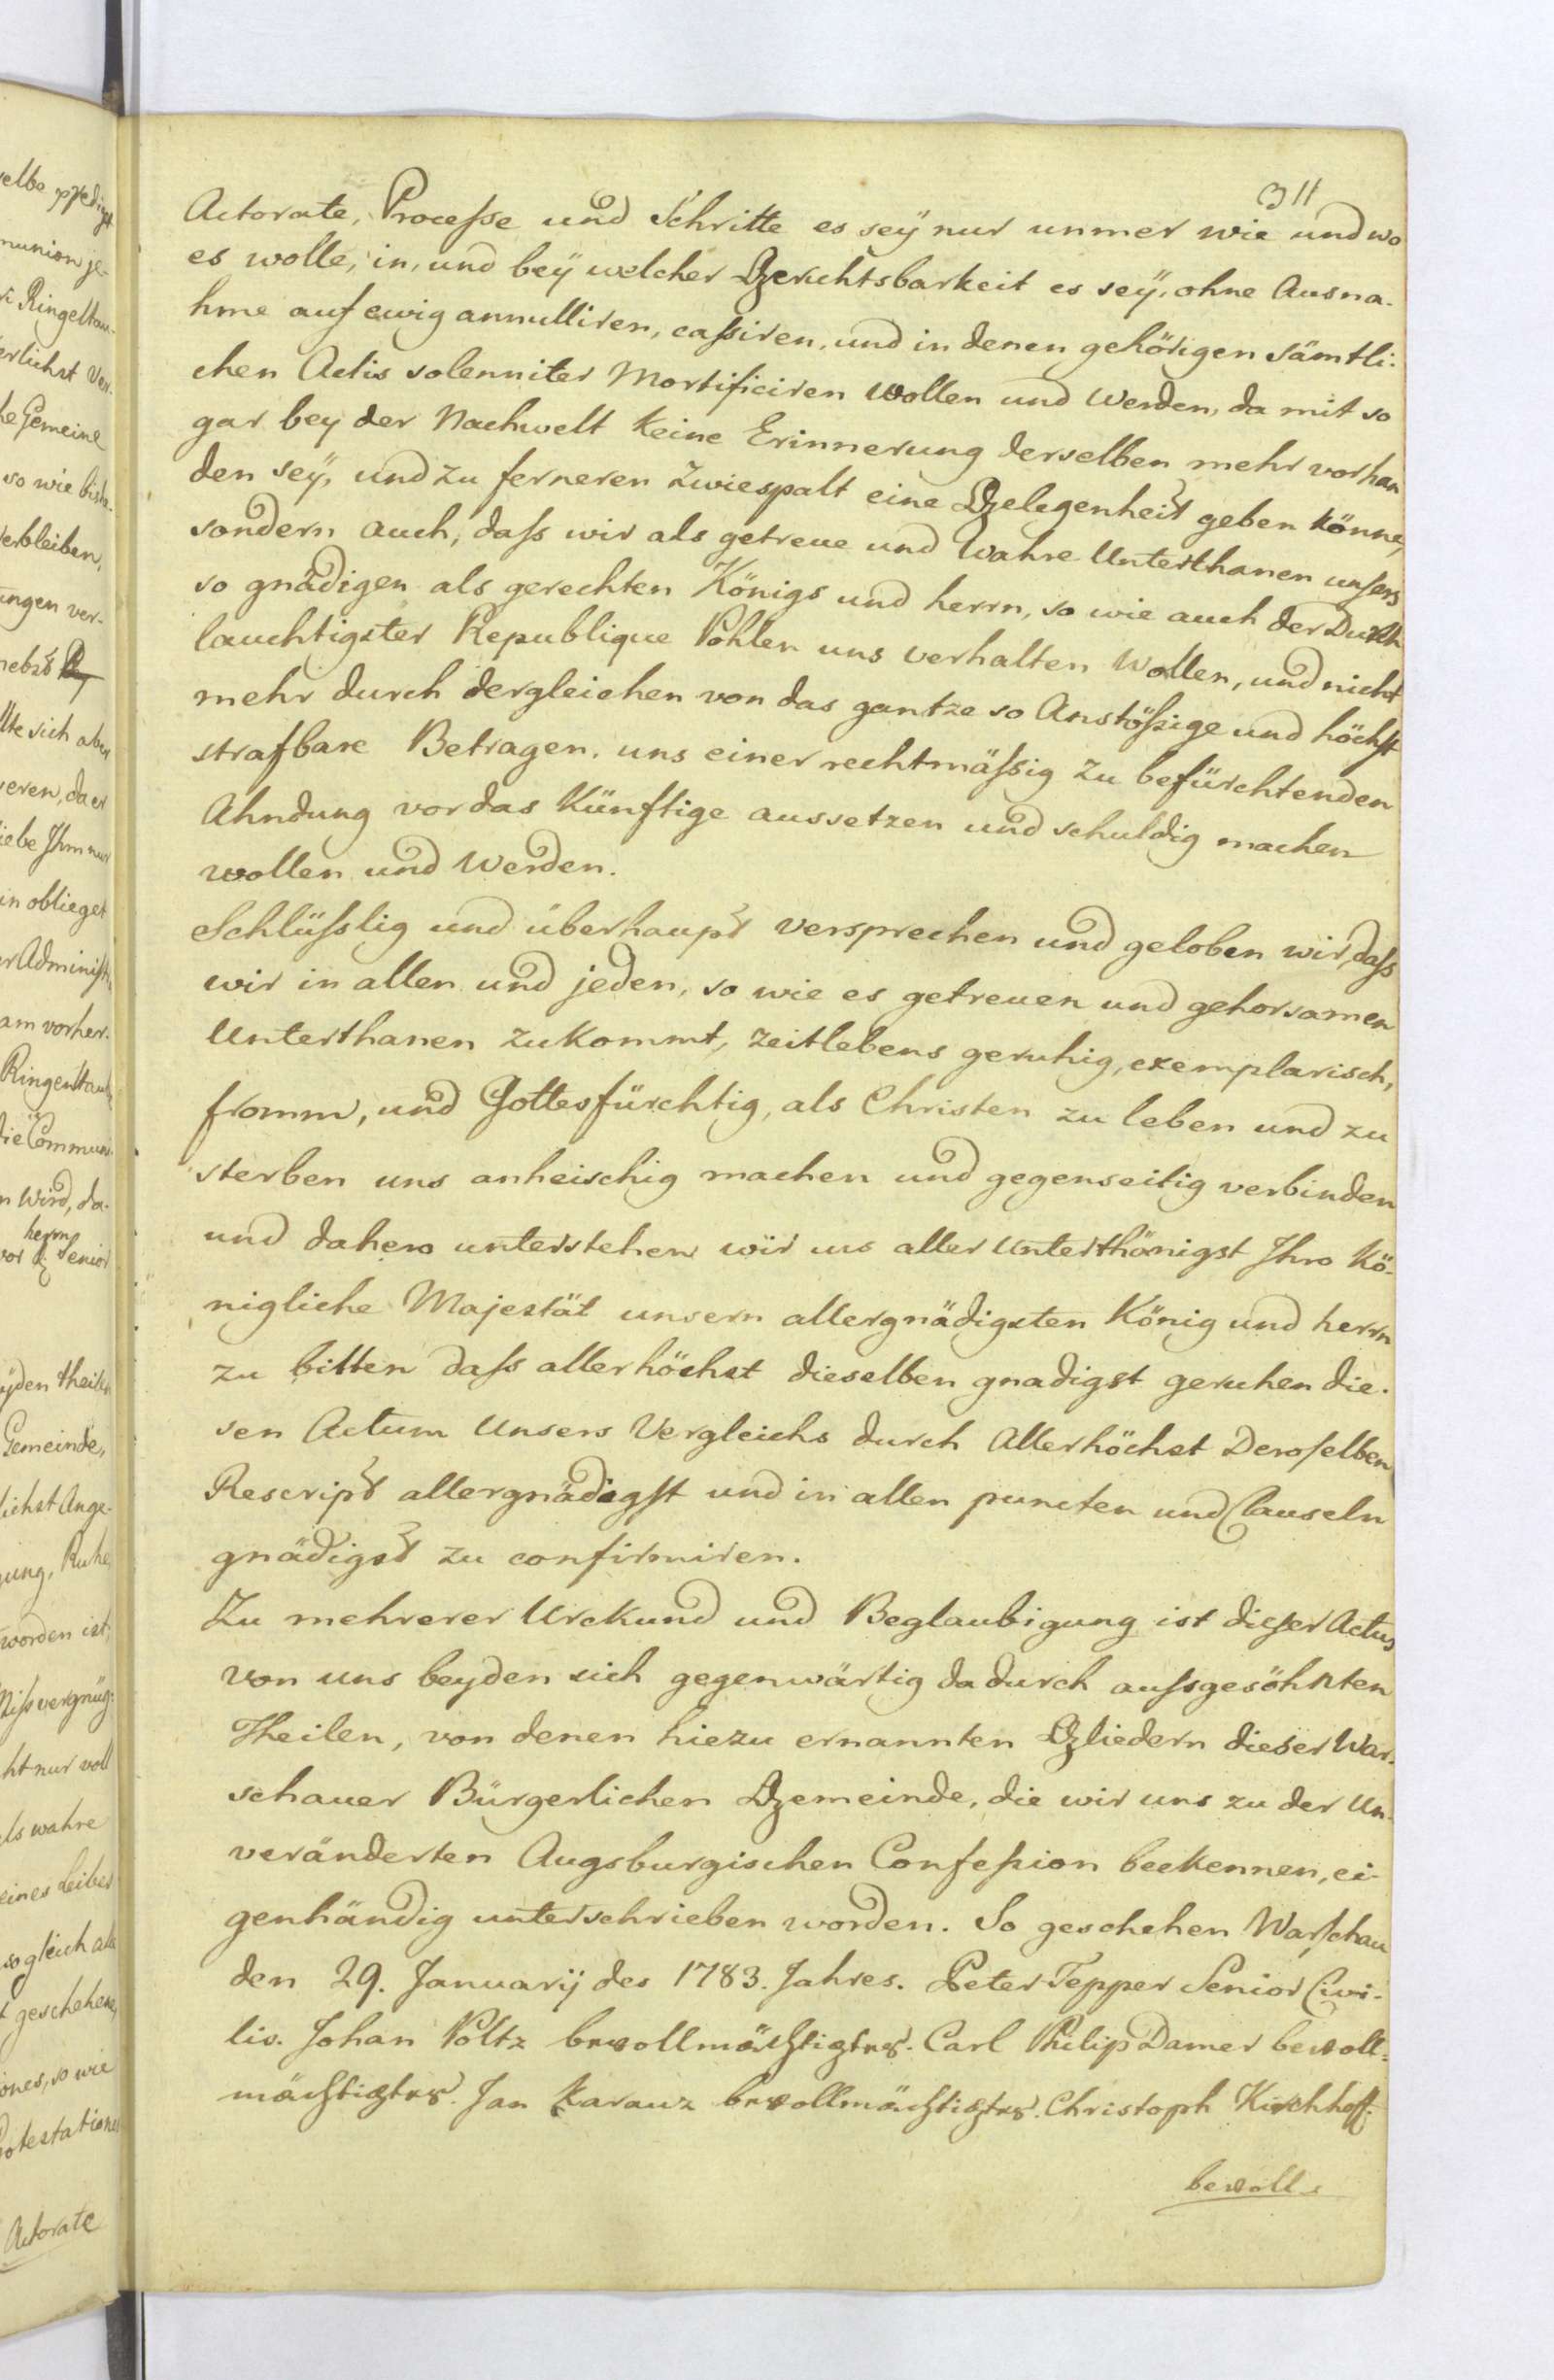 311
Actorate, Processe und Schritte es seÿ nur immer wie und wo
es wolle, in, und beÿ welcher Gerichtsbarkeit es seÿ, ohne Ausna-
hme auf ewig annulliren, cassiren, und in denen gehörigen sämtli-
chen Actis solenniter Mortificiren wollen und werden, da mit so
gar bey der Nachwelt keine Erinnerung derselben mehr vorhan
den seÿ, und zu ferneren Zwiespalt eine Gelegenheit geben könne,
sondern auch, dass wir als getreue und Wahre Unterthanen unsers
so gnädigen als gerechten Königs und herrn, so wie auch der Durch
lauchtigster Republique Pohlen uns verhalten Wollen, und nicht
mehr durch dergleichen von das gantze so Anstössige und höchst
strafbare Betragen, uns einer rechtmässig zu befürchtenden
Ahndung vor das Künftige aussetzen und schuldig machen
wollen und Werden.
Schlüsslig und überhaupt versprechen und geloben wir, dass
wir in allen und jeden, so wie es getreuen und gehorsamen
Unterthanen zukommt, zeitlebens geruhig, exemplarisch,
fromm, und Gottesfürchtig, als Christen zu leben und zu
sterben uns anheischig machen und gegenseitig verbinden
und dahero unterstehen wir uns aller Unterthänigst Ihro Kö-
nigliche Majestät unsern allergnädigsten König und herrn
zu bitten dass allerhöchst dieselben gnadigst geruhen die-
sen Actum Unsers Vergleichs durch Allerhöchst Deroselben
Rescript allergnädigst und in allen puncten und Clauseln
gnädigst zu confirmiren.
Zu mehrerer Urckund und Beglaubigung ist dieser Actus
von uns beyden sich gegenwärtig da durch aussgesöhnten
Theilen, von denen hiezu ernannten Gliedern dieser War-
schauer Bürgerlichen Gemeinde, die wir uns zu der Un-
veränderten Augsburgischen Confession beekennen, ei-
genhändig unterschrieben worden. So geschehen Warschau
den 29. Januarij des 1783. Jahres. Peter Tepper Senior Civi-
lis. Johan Poltz bevollmächtigter. Carl Philip Damer bevoll-
mächtigter. Jan Karauz bevollmächtigter. Christoph Kirchhoff.
bevoll-